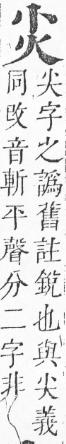 尖字之譌舊註銳也與尖義
同改音斬平聲分二字非